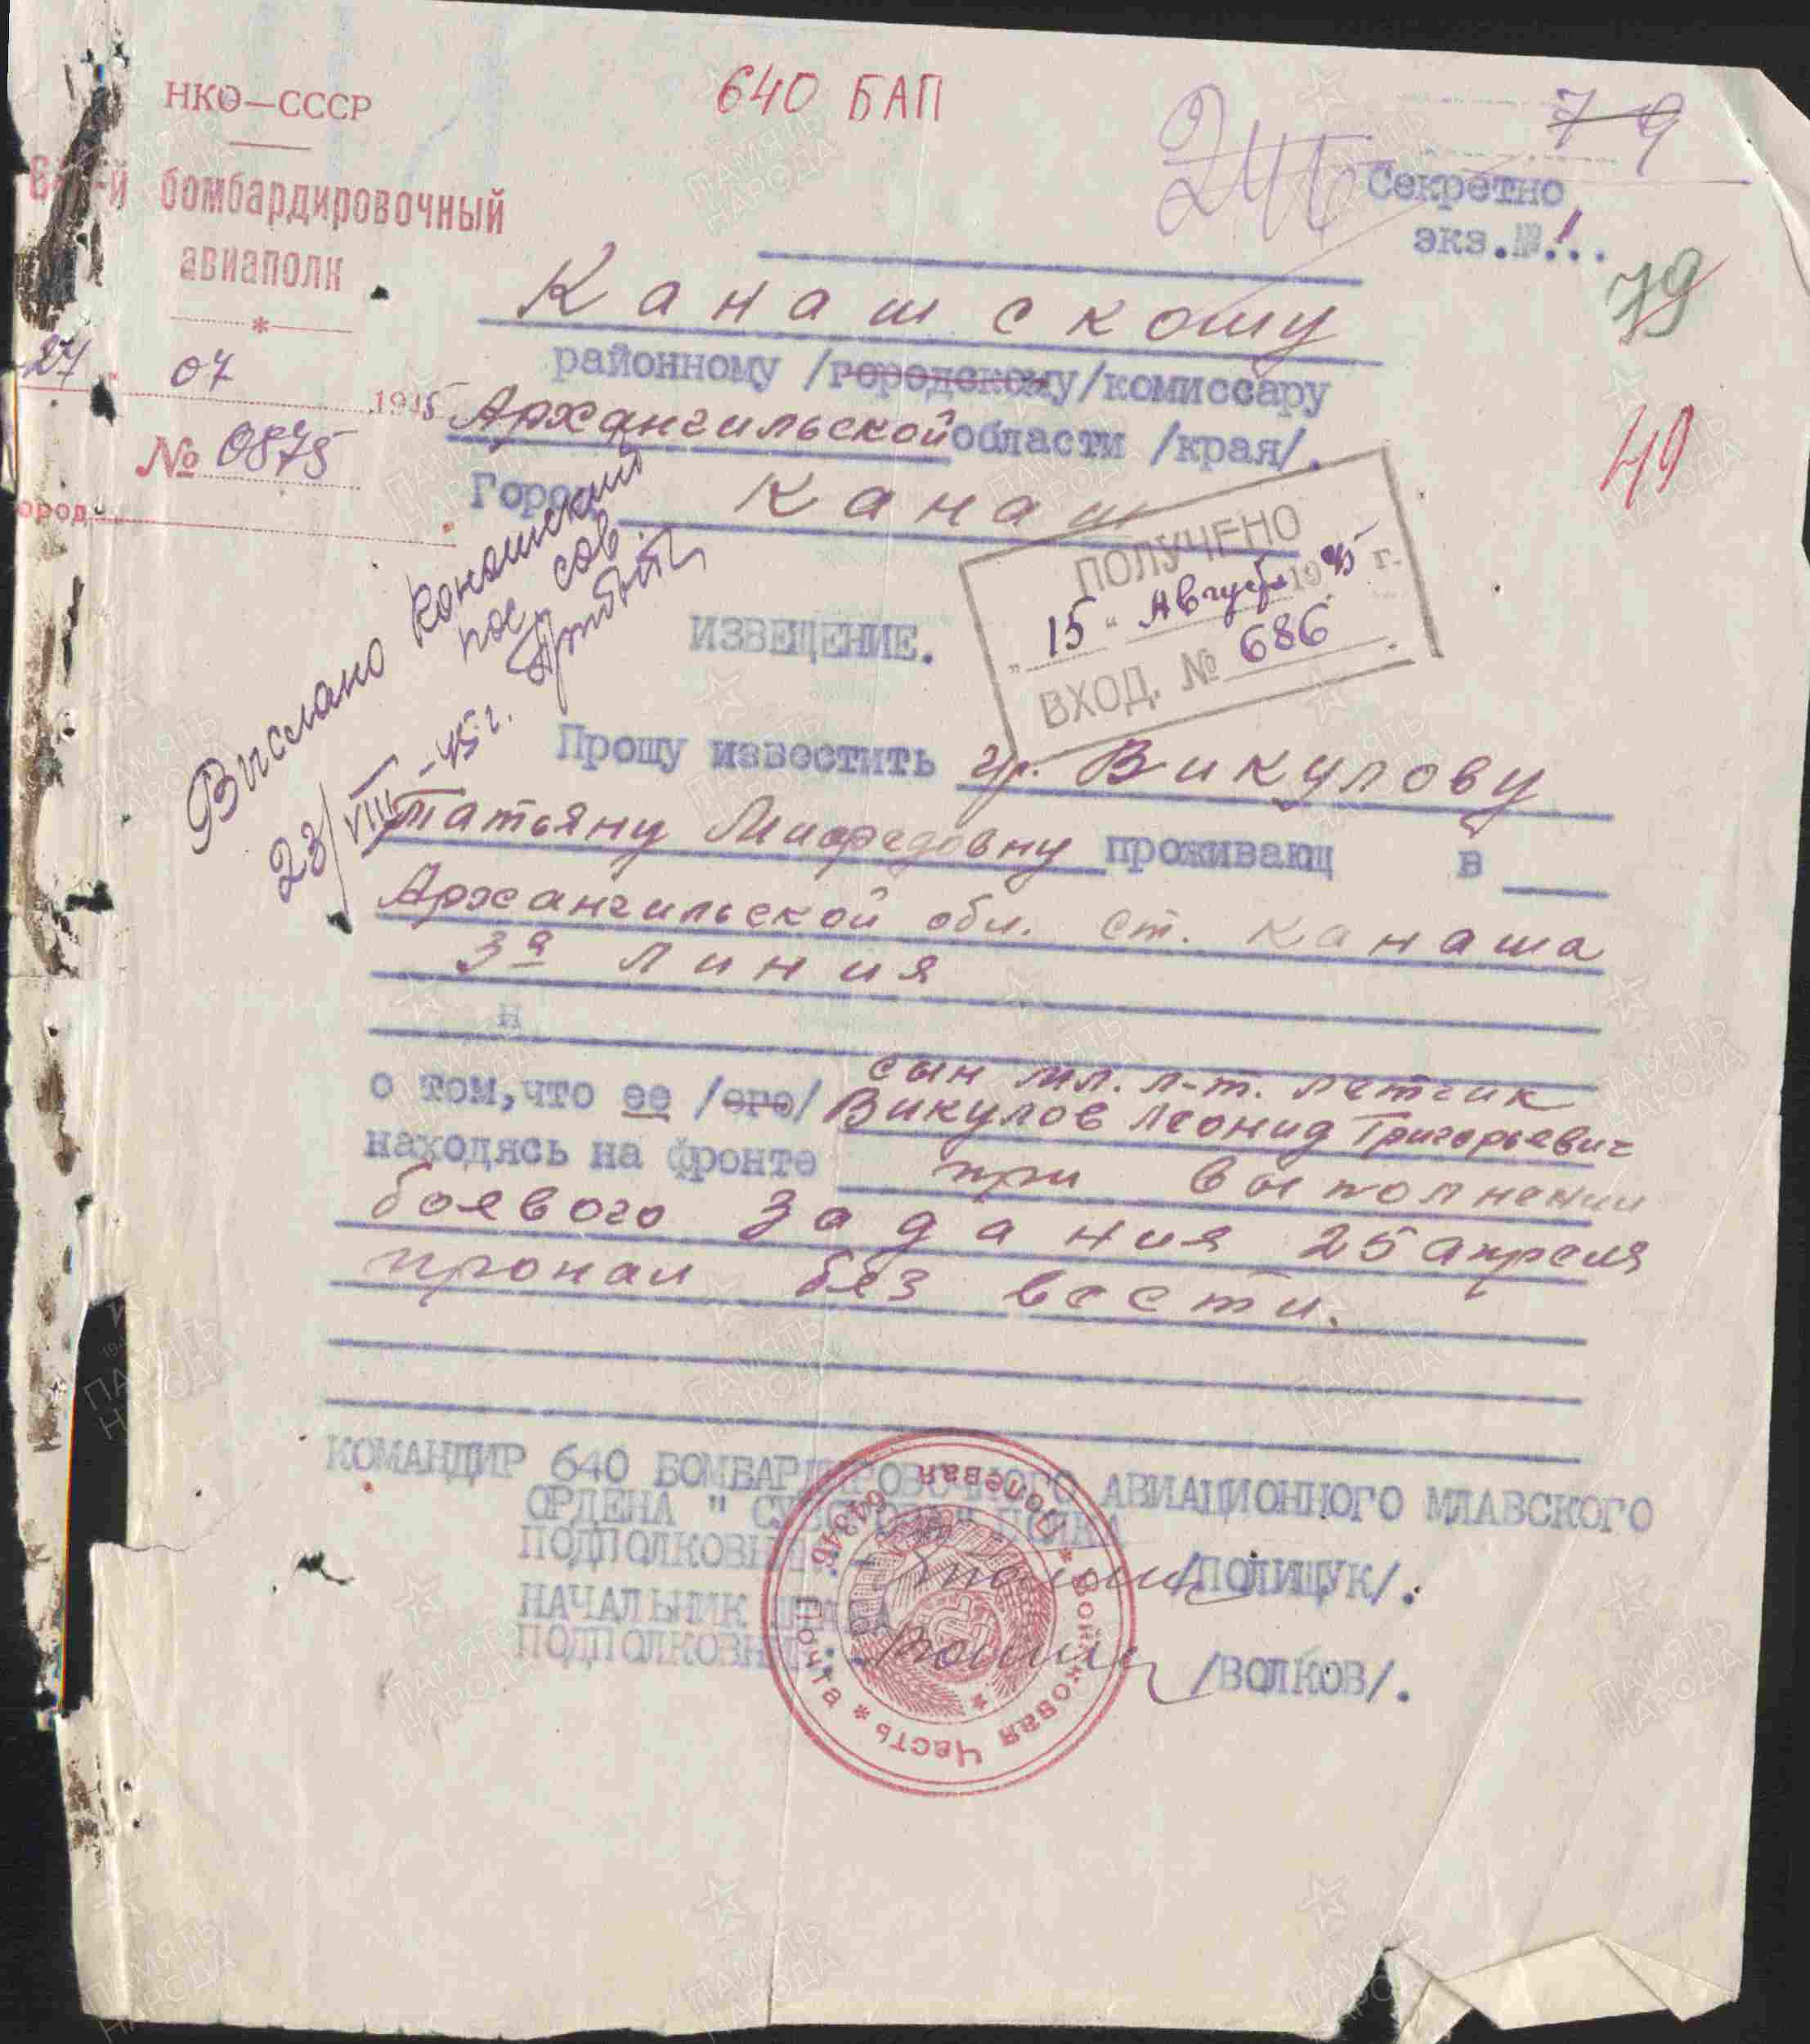 НКО—СССР
640 БАП
79
Секретно
экз.№1...
бомбардировочный
авиаполк
79
Канашскому
районному /городскому/комиссару
27 07 1945
Архангильской области /края/.
49
№ 0875
Город Канаш
ород
ПОЛУЧЕНО
"15" Августа 1945 г.
ВХОД. № 686
Выслано Коношский
пос. сов.
23/VIII-45г.
ИЗВЕЩЕНИЕ.
Прошу известить гр. Викулову
татьяну Мифедовну проживающ в
Архангильской обл. ст. Канаша
3я линия
н
сын мл. л-т. летчик
о том,что ее /его/ Викулов Леонид Григорьевич
находясь на фронте при выполнении
боевого задания 25 апреля
пропал без вести.
КОМАНДИР 640 БОМБАРДИРОВОЧНОГО АВИАЦИОННОГО МЛАВСКОГО
ОРДЕНА "СУВОРОВА" ПОЛКА
ПОДПОЛКОВНИК: /ПОЛИЩУК/.
НАЧАЛЬНИК ШТАБА
ПОДПОЛКОВНИК: /ВОЛКОВ/.
Войсковая часть * Полевая Почта * 64346
ПАМЯТЬ НАРОДА